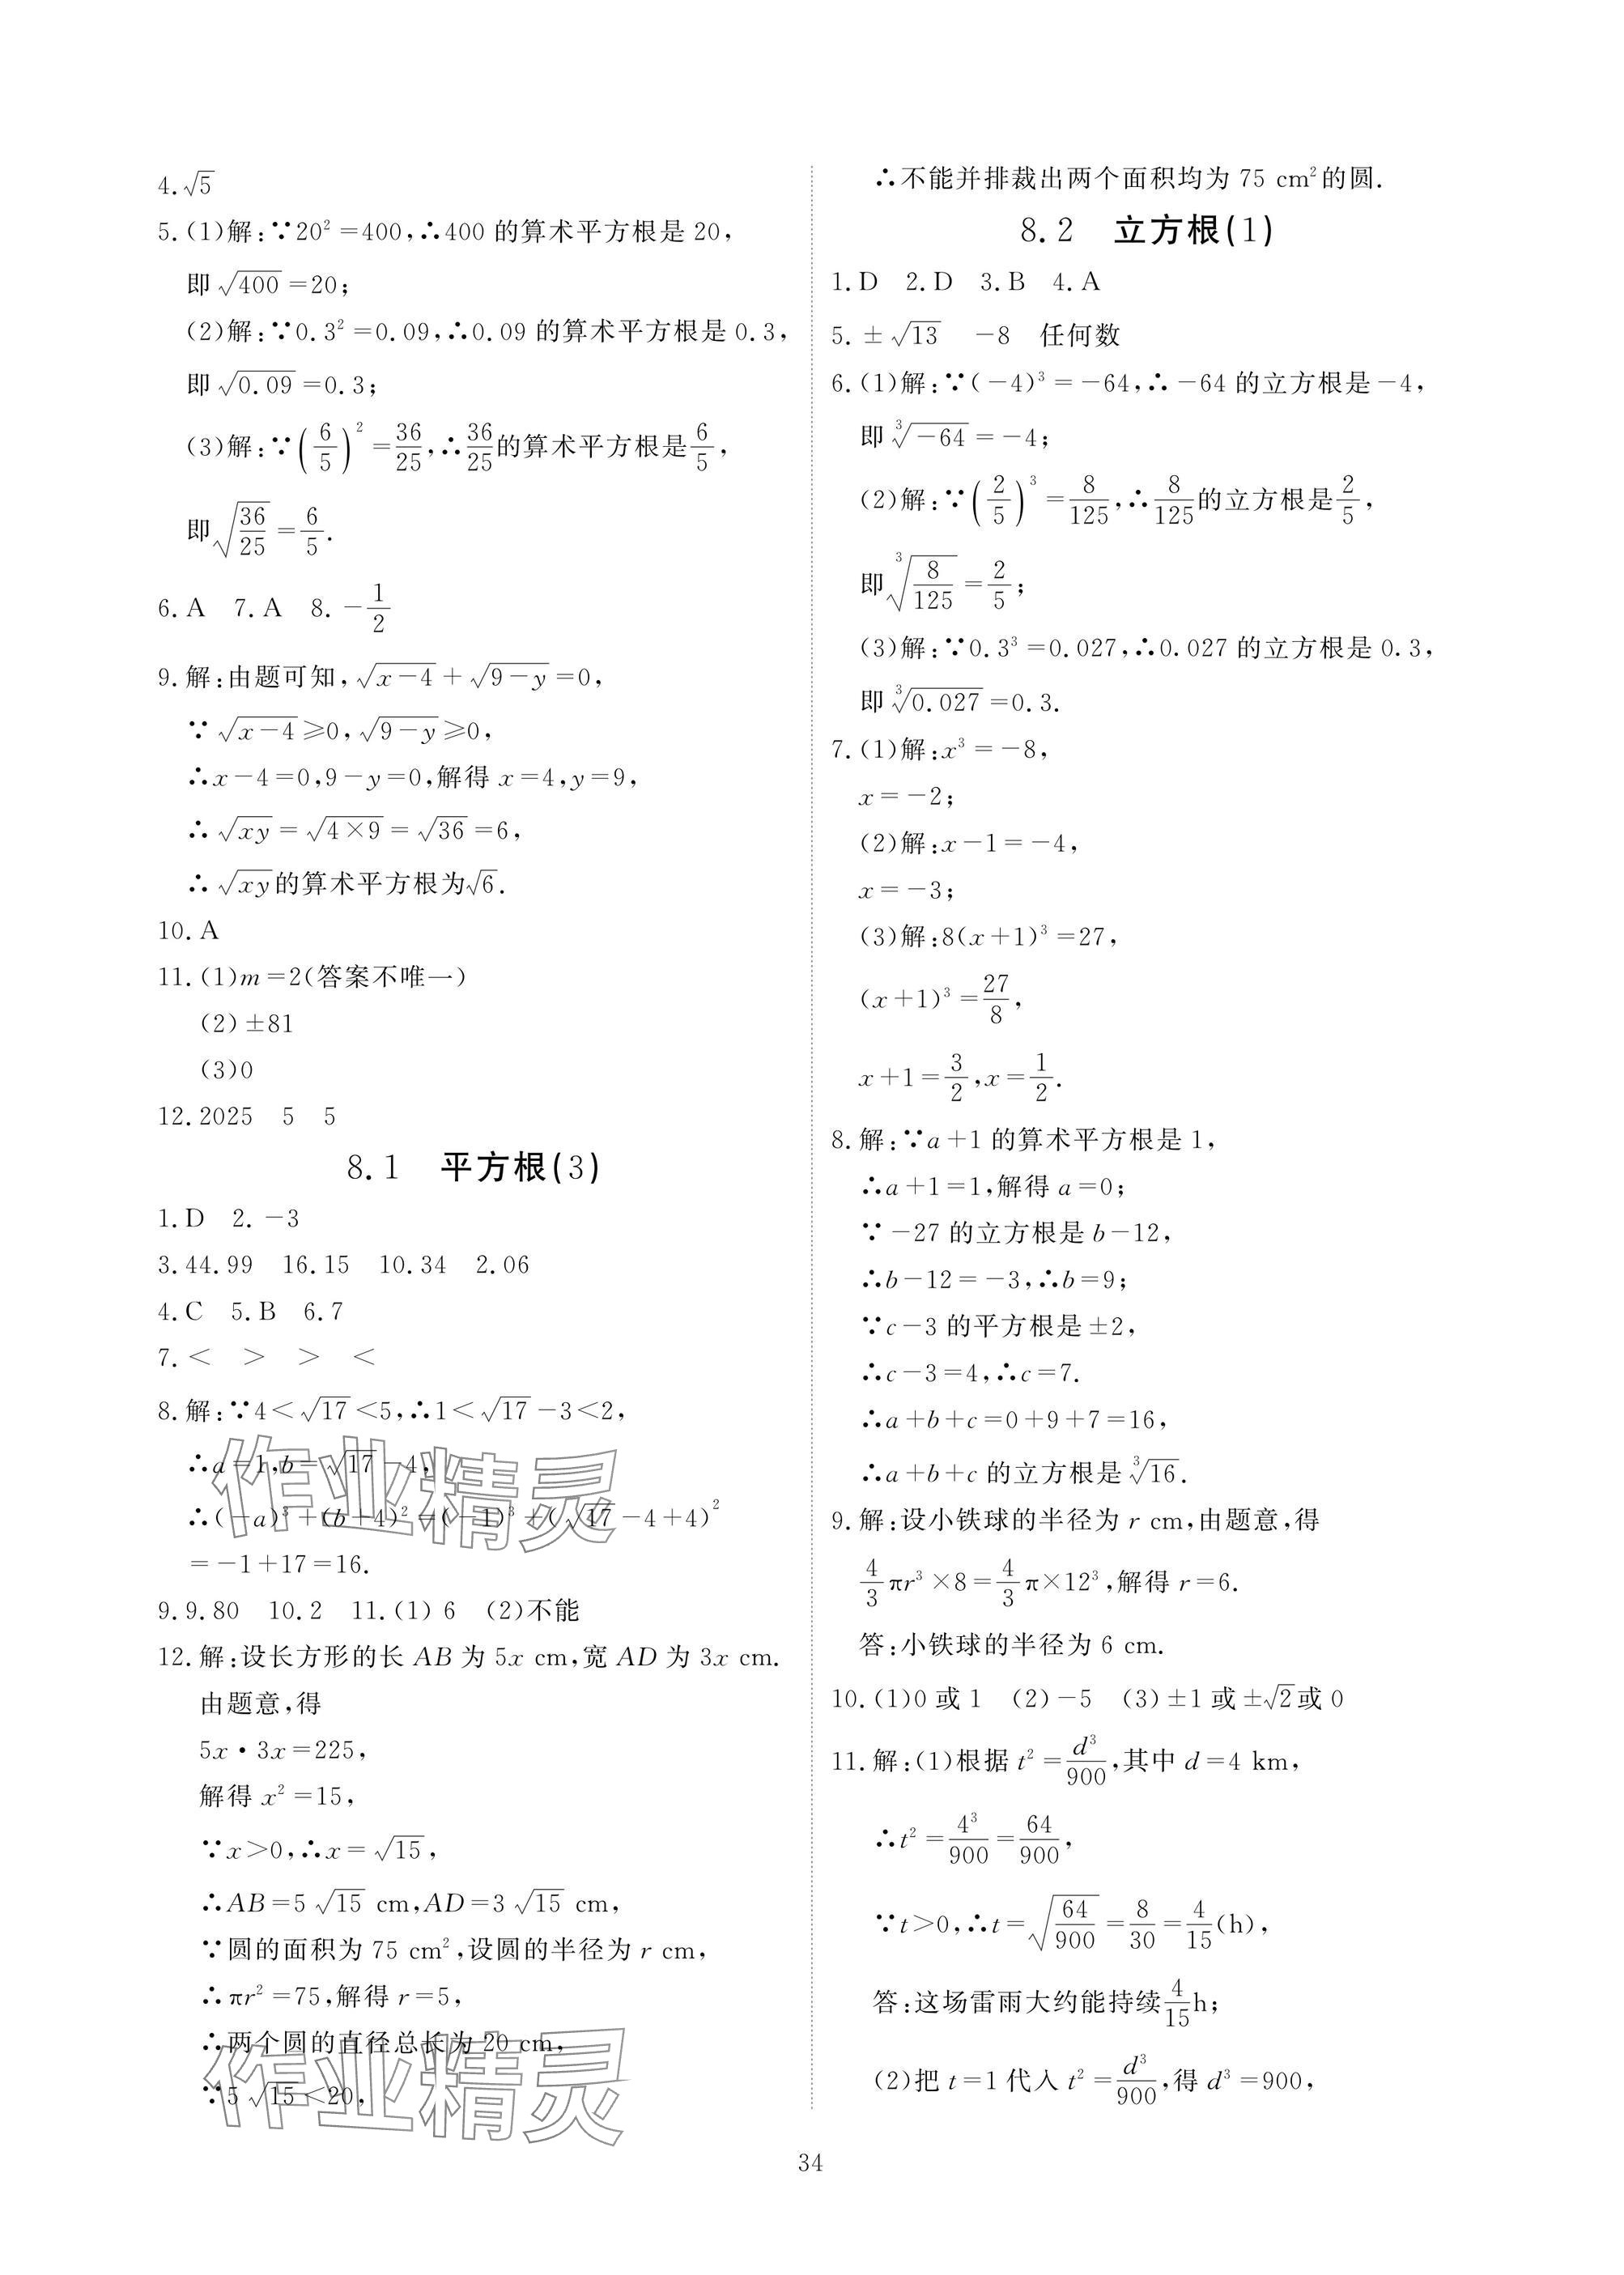 4.√5
5.(1)解:∵20²=400,∴400的算术平方根是20,
即√400=20;
(2)解:∵0.3²=0.09,∴0.09的算术平方根是0.3,
即√0.09=0.3;
(3)解:∵(6/5)²=36/25,∴36/25的算术平方根是6/5,
即√(36/25)=6/5.
6.A 7.A 8.-1/2
9.解:由题可知,√(x-4)+√(9-y)=0,
∵√(x-4)≥0,√(9-y)≥0,
∴x-4=0,9-y=0,解得x=4,y=9,
∴√(xy)=√(4×9)=√36=6,
∴√(xy)的算术平方根为√6.
10.A
11.(1)m=2(答案不唯一)
(2)±81
(3)0
12.2025 5 5
8.1 平方根(3)
1.D 2.-3
3.44.99 16.15 10.34 2.06
4.C 5.B 6.7
7.< > > <
8.解:∵4<√17<5,∴1<√17-3<2,
∴a=1,b=√17-4,
∴(-a)³+(b+4)²=(-1)³+(√17-4+4)²
=-1+17=16.
9.9.80 10.2 11.(1)6 (2)不能
12.解:设长方形的长AB为5x cm,宽AD为3x cm.
由题意,得
5x·3x=225,
解得x²=15,
∵x>0,∴x=√15,
∴AB=5√15 cm,AD=3√15 cm,
∵圆的面积为75 cm²,设圆的半径为r cm,
∴πr²=75,解得r=5,
∴两个圆的直径总长为20 cm,
∵5√15<20,
∴不能并排裁出两个面积均为75 cm²的圆.
8.2 立方根(1)
1.D 2.D 3.B 4.A
5.±√13 -8 任何数
6.(1)解:∵(-4)³=-64,∴-64的立方根是-4,
即∛(-64)=-4;
(2)解:∵(2/5)³=8/125,∴8/125的立方根是2/5,
即∛(8/125)=2/5;
(3)解:∵0.3³=0.027,∴0.027的立方根是0.3,
即∛0.027=0.3.
7.(1)解:x³=-8,
x=-2;
(2)解:x-1=-4,
x=-3;
(3)解:8(x+1)³=27,
(x+1)³=27/8,
x+1=3/2,x=1/2.
8.解:∵a+1的算术平方根是1,
∴a+1=1,解得a=0;
∵-27的立方根是b-12,
∴b-12=-3,∴b=9;
∵c-3的平方根是±2,
∴c-3=4,∴c=7.
∴a+b+c=0+9+7=16,
∴a+b+c的立方根是∛16.
9.解:设小铁球的半径为r cm,由题意,得
4/3πr³×8=4/3π×12³,解得r=6.
答:小铁球的半径为6 cm.
10.(1)0或1 (2)-5 (3)±1或±√2或0
11.解:(1)根据t²=d³/900,其中d=4 km,
∴t²=4³/900=64/900,
∵t>0,∴t=√(64/900)=8/30=4/15(h),
答:这场雷雨大约能持续4/15h;
(2)把t=1代入t²=d³/900,得d³=900,
34
作业精灵
作业精灵